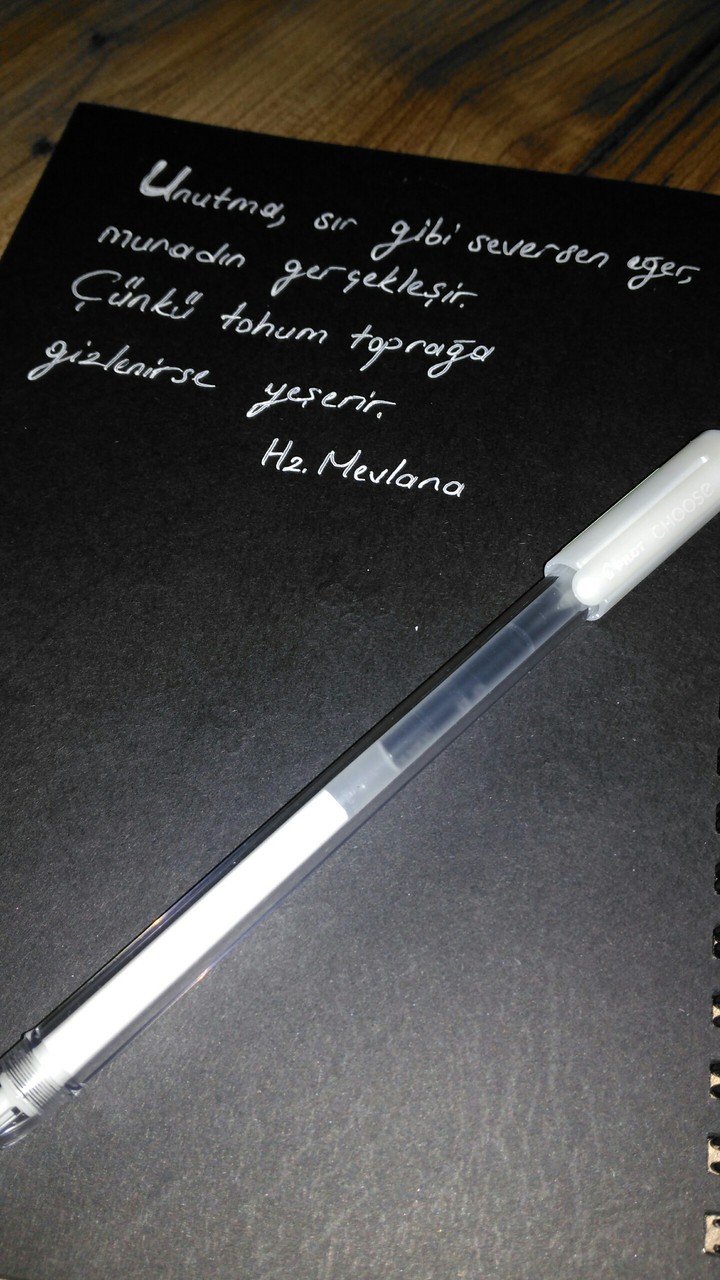 Unutma, sır gibi seversen eğer,
muradın gerçekleşir.
Çünkü tohum toprağa
gizlenirse yeşerir.
Hz. Mevlana
PILOT CHOOSE